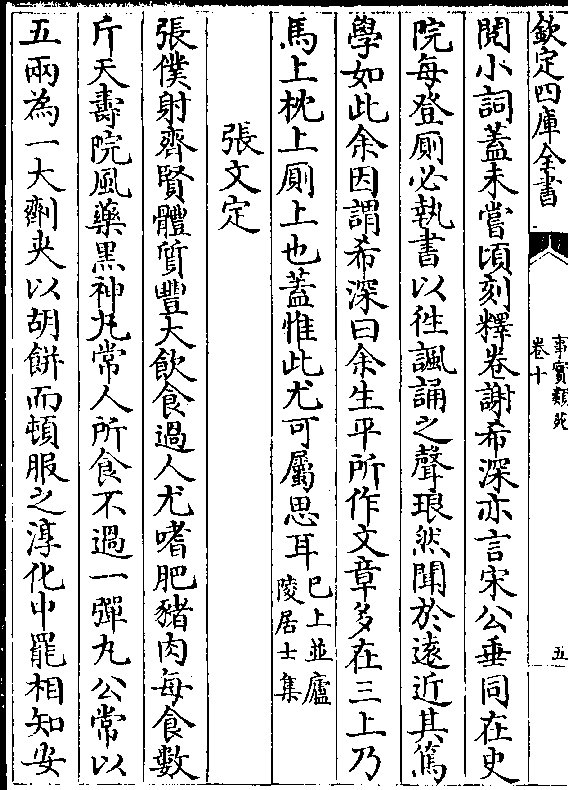 欽定四庫全書
事實類苑
卷十
五
閱小詞蓋未嘗頃刻釋卷謝希深亦言宋公垂同在史
院每登厠必執書以徃諷誦之聲琅然聞於遠近其篤
學如此余因謂希深曰余生平所作文章多在三上乃
馬上枕上厠上也蓋惟此尤可屬思耳已上並廬
陵居士集
張文定
張僕射齊賢體質豐大飲食過人尤嗜肥豬肉每食數
斤天壽院風藥黑神丸常人所食不過一彈丸公常以
五兩為一大劑夾以胡餅而頓服之淳化中罷相知安